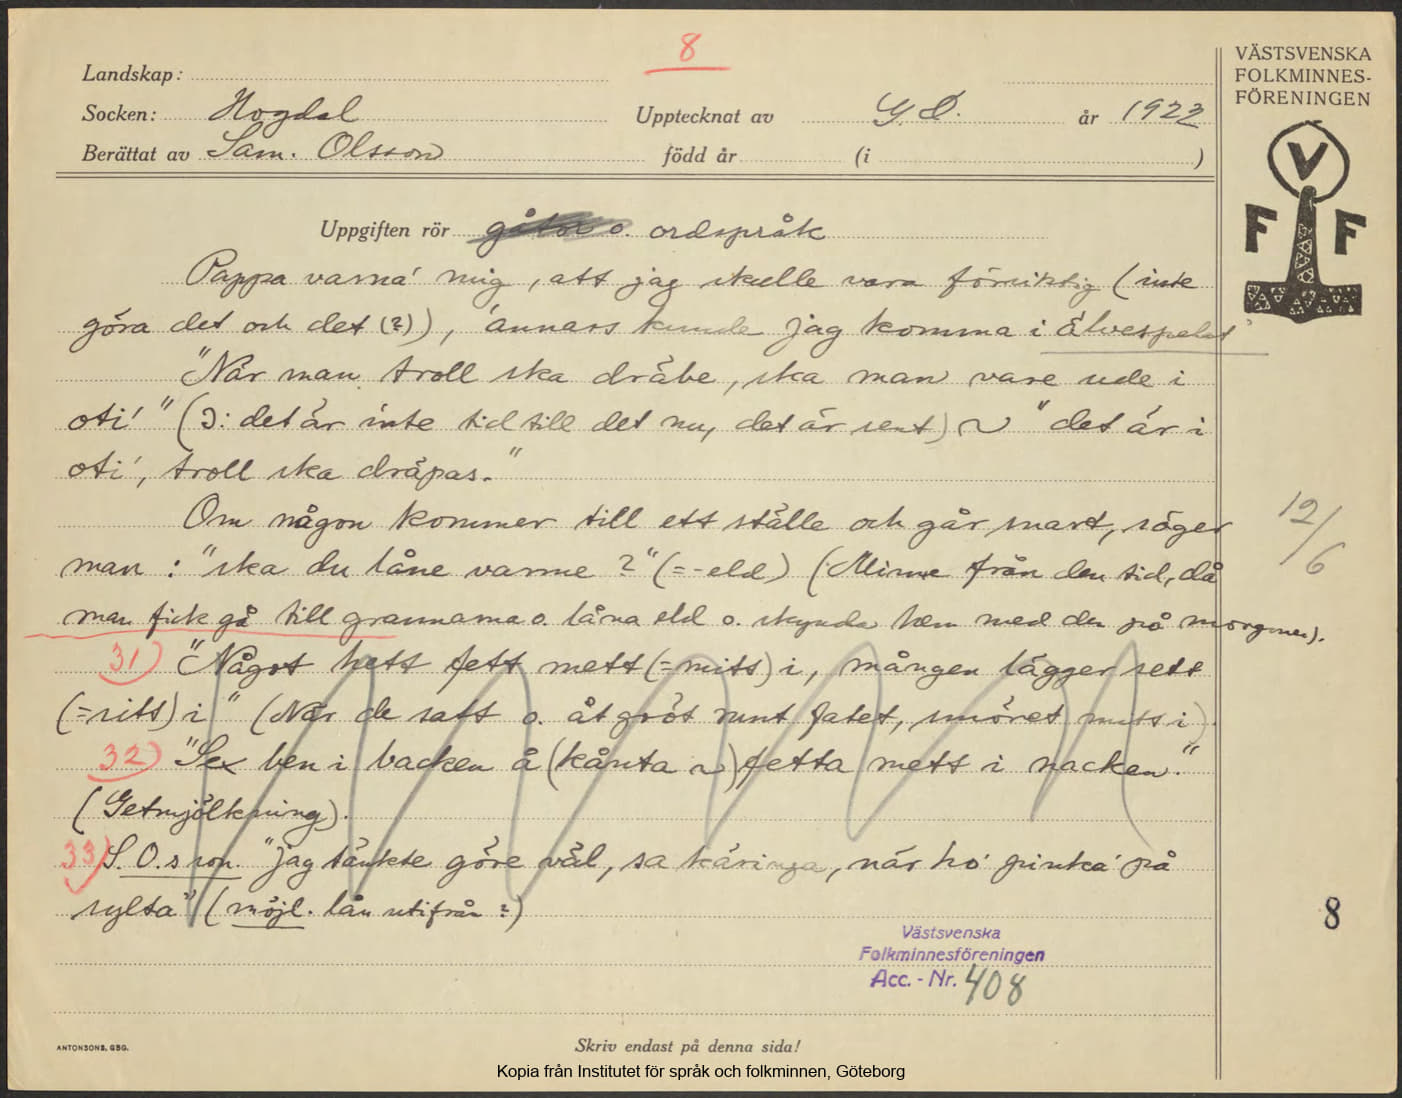 8
VÄSTSVENSKA
FOLKMINNES-
FÖRENINGEN
V
F F
Landskap:
Socken: Hogdal Upptecknat av G. O. år 1922
Berättat av Sam. Olsson född år (i )
Uppgiften rör gåtor o. ordspråk
Pappa varna' mig, att jag skulle vara försiktig (inte
göra det och det (?)), 'annars kunde jag komma i älvespelet'
"När man troll ska dräbe, ska man vare ude i
oti'" (ɔ: det är inte tid till det nu, det är sent) ~ "det är i
oti', troll ska dräpas."
Om någon kommer till ett ställe och går snart, säger
man: "ska du låne varme?" (= -eld) (Minne från den tid, då
man fick gå till grannarna o. låna eld o. skynda hem med den på morgonen).
12/6
31) "Något hett fett mett (=mitt) i, mången lägger sett
(=sitt) i" (När de satt o. åt gröt runt fatet, smöret mitt i).
32) "Sex ben i backen å (kånta ~) fetta mett i nacken."
(Getmjölkning).
33) S. O.sson. "jag tänkte göre väl, sa käringa, när ho' pinka' på
sylta" (möjl. lån utifrån?)
8
Västsvenska
Folkminnesföreningen
Acc. - Nr. 408
ANTONSONS, GBG.
Skriv endast på denna sida!
Kopia från Institutet för språk och folkminnen, Göteborg